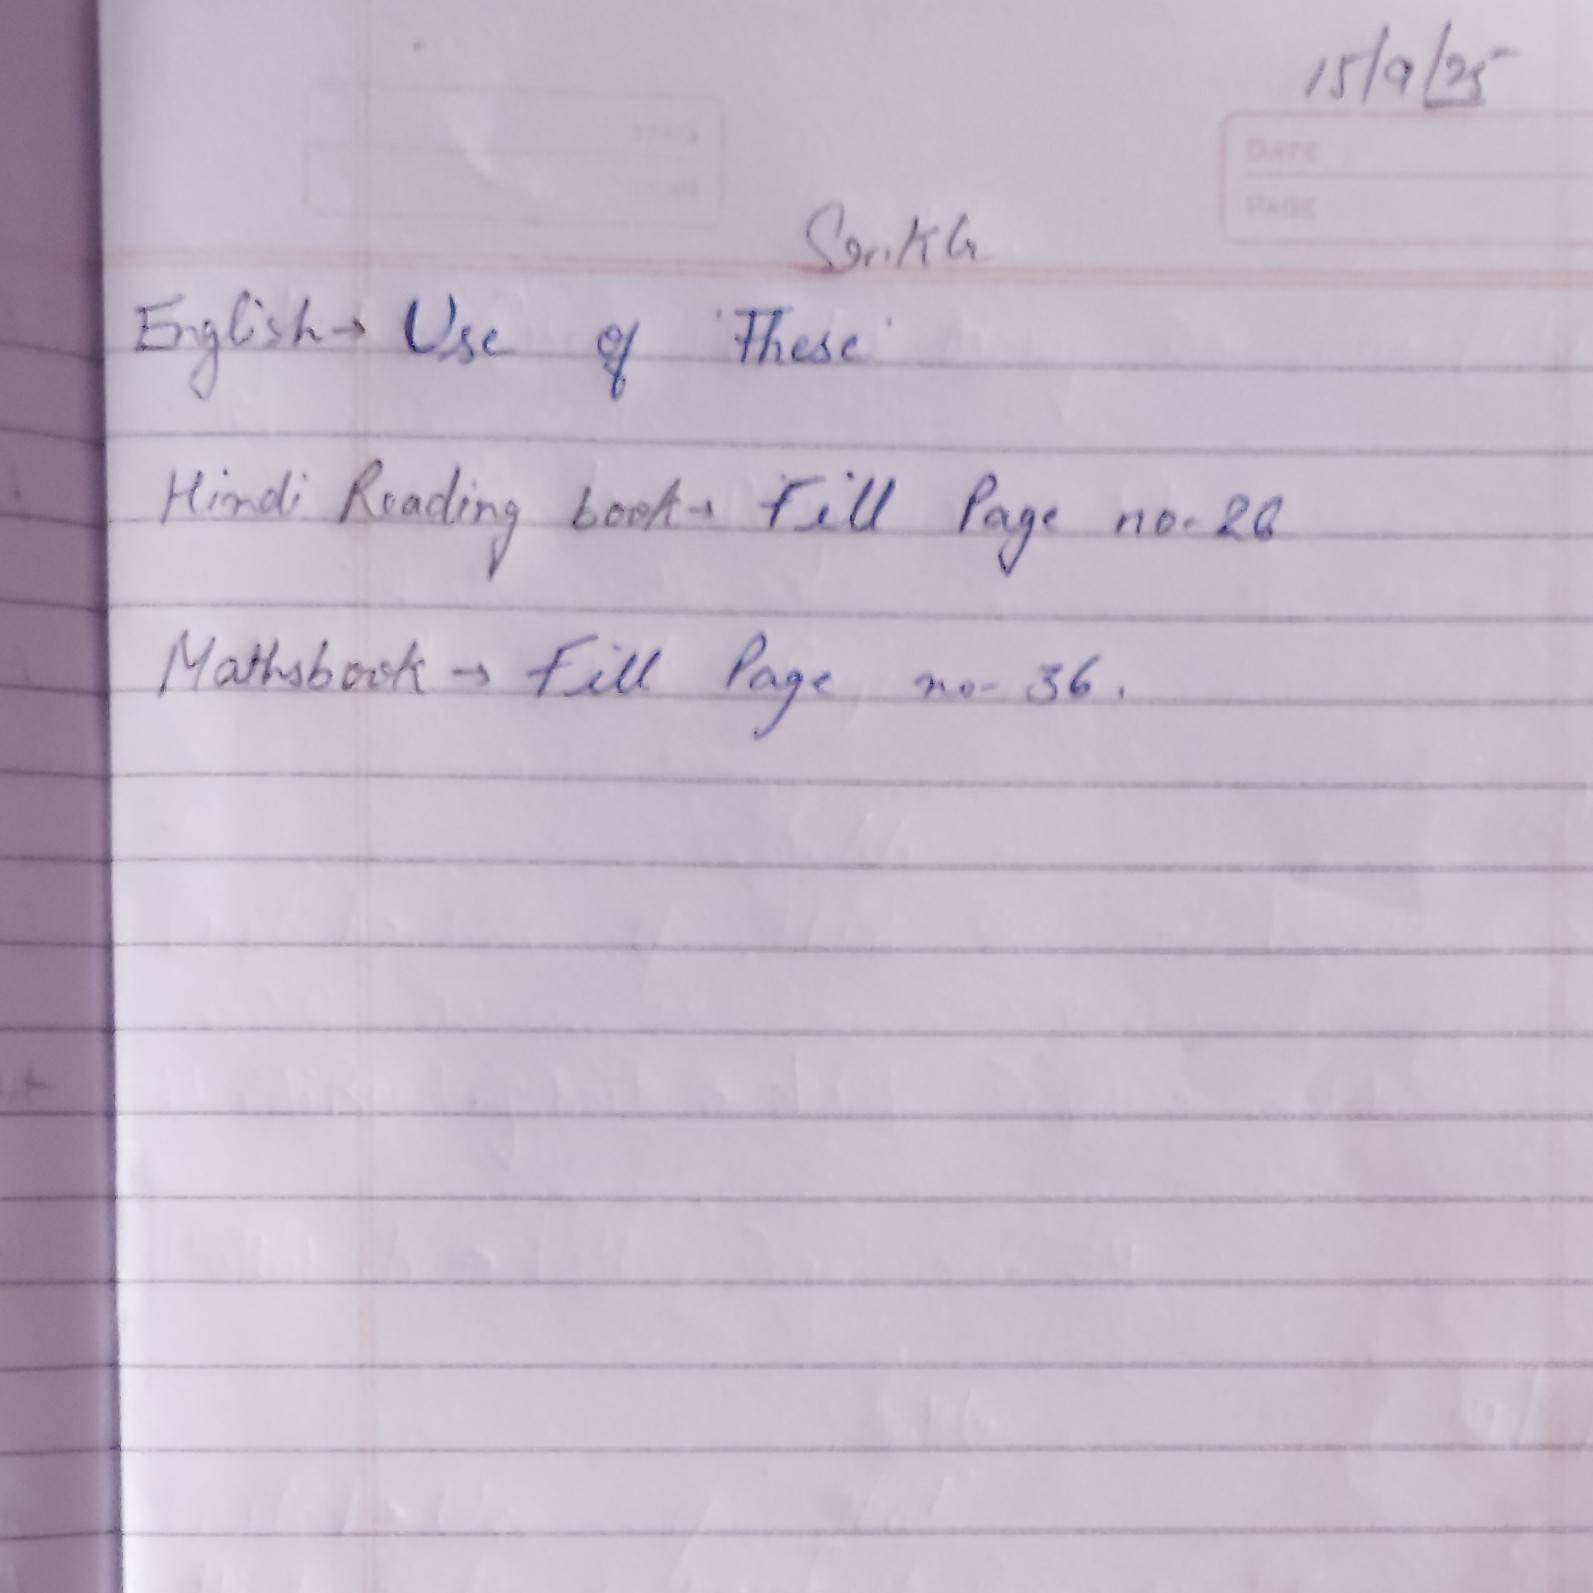 15/9/25
DATE
PAGE
Sr.KG
English→ Use of 'These'
Hindi Reading book→ Fill Page no-26
Mathsbook → Fill Page no- 36.